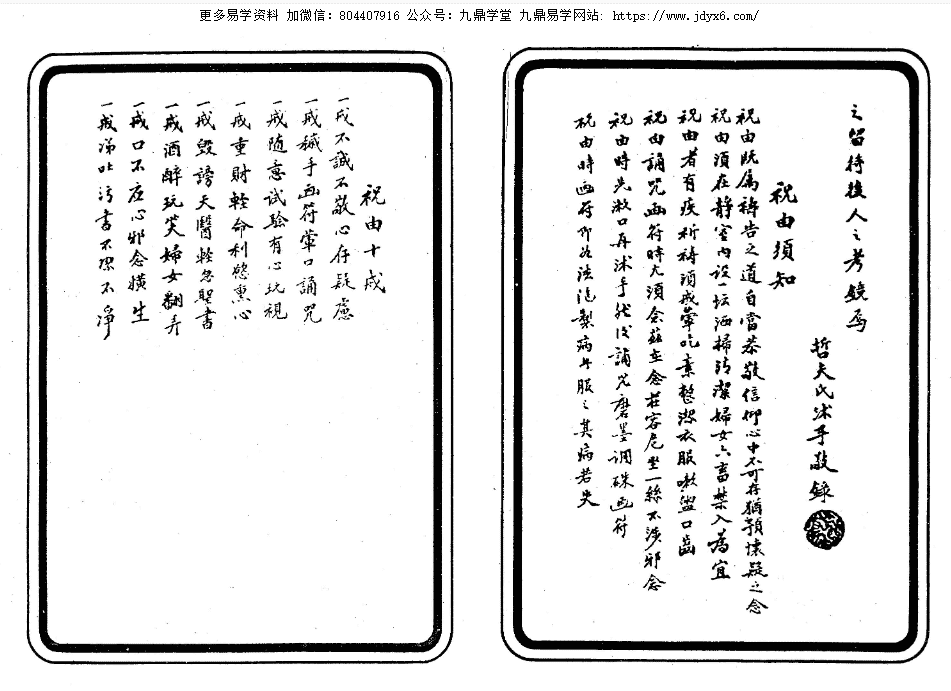 更多易学资料 加微信：804407916 公众号：九鼎学堂 九鼎易学网站: https://www.jdyx6.com/
之留待后人之考镜焉
哲夫氏沐手敬录
祝由须知
祝由既属祷告之道自當恭敬信仰心中不可存猶預懷疑之念
祝由須在静室内设一坛洒掃清潔婦女六畜禁入為宜
祝由者有疾祈祷須戒葷吃素整洁衣服嗽盥口齒
祝由誦咒画符時尤須念兹在念莊容危坐一絲不涉邪念
祝由時先漱口再沐手然後誦咒磨墨调硃画符
祝由時画符即如法泡製病者服之其病若失
祝由十戒
一戒不誠不敬心存疑慮
一戒穢手画符葷口誦咒
一戒随意試驗有心玩視
一戒重財輕命利慾熏心
一戒毁謗天醫輕忽聖書
一戒酒醉玩笑婦女翻弄
一戒口不应心邪念横生
一戒涕吐污書不潔不淨